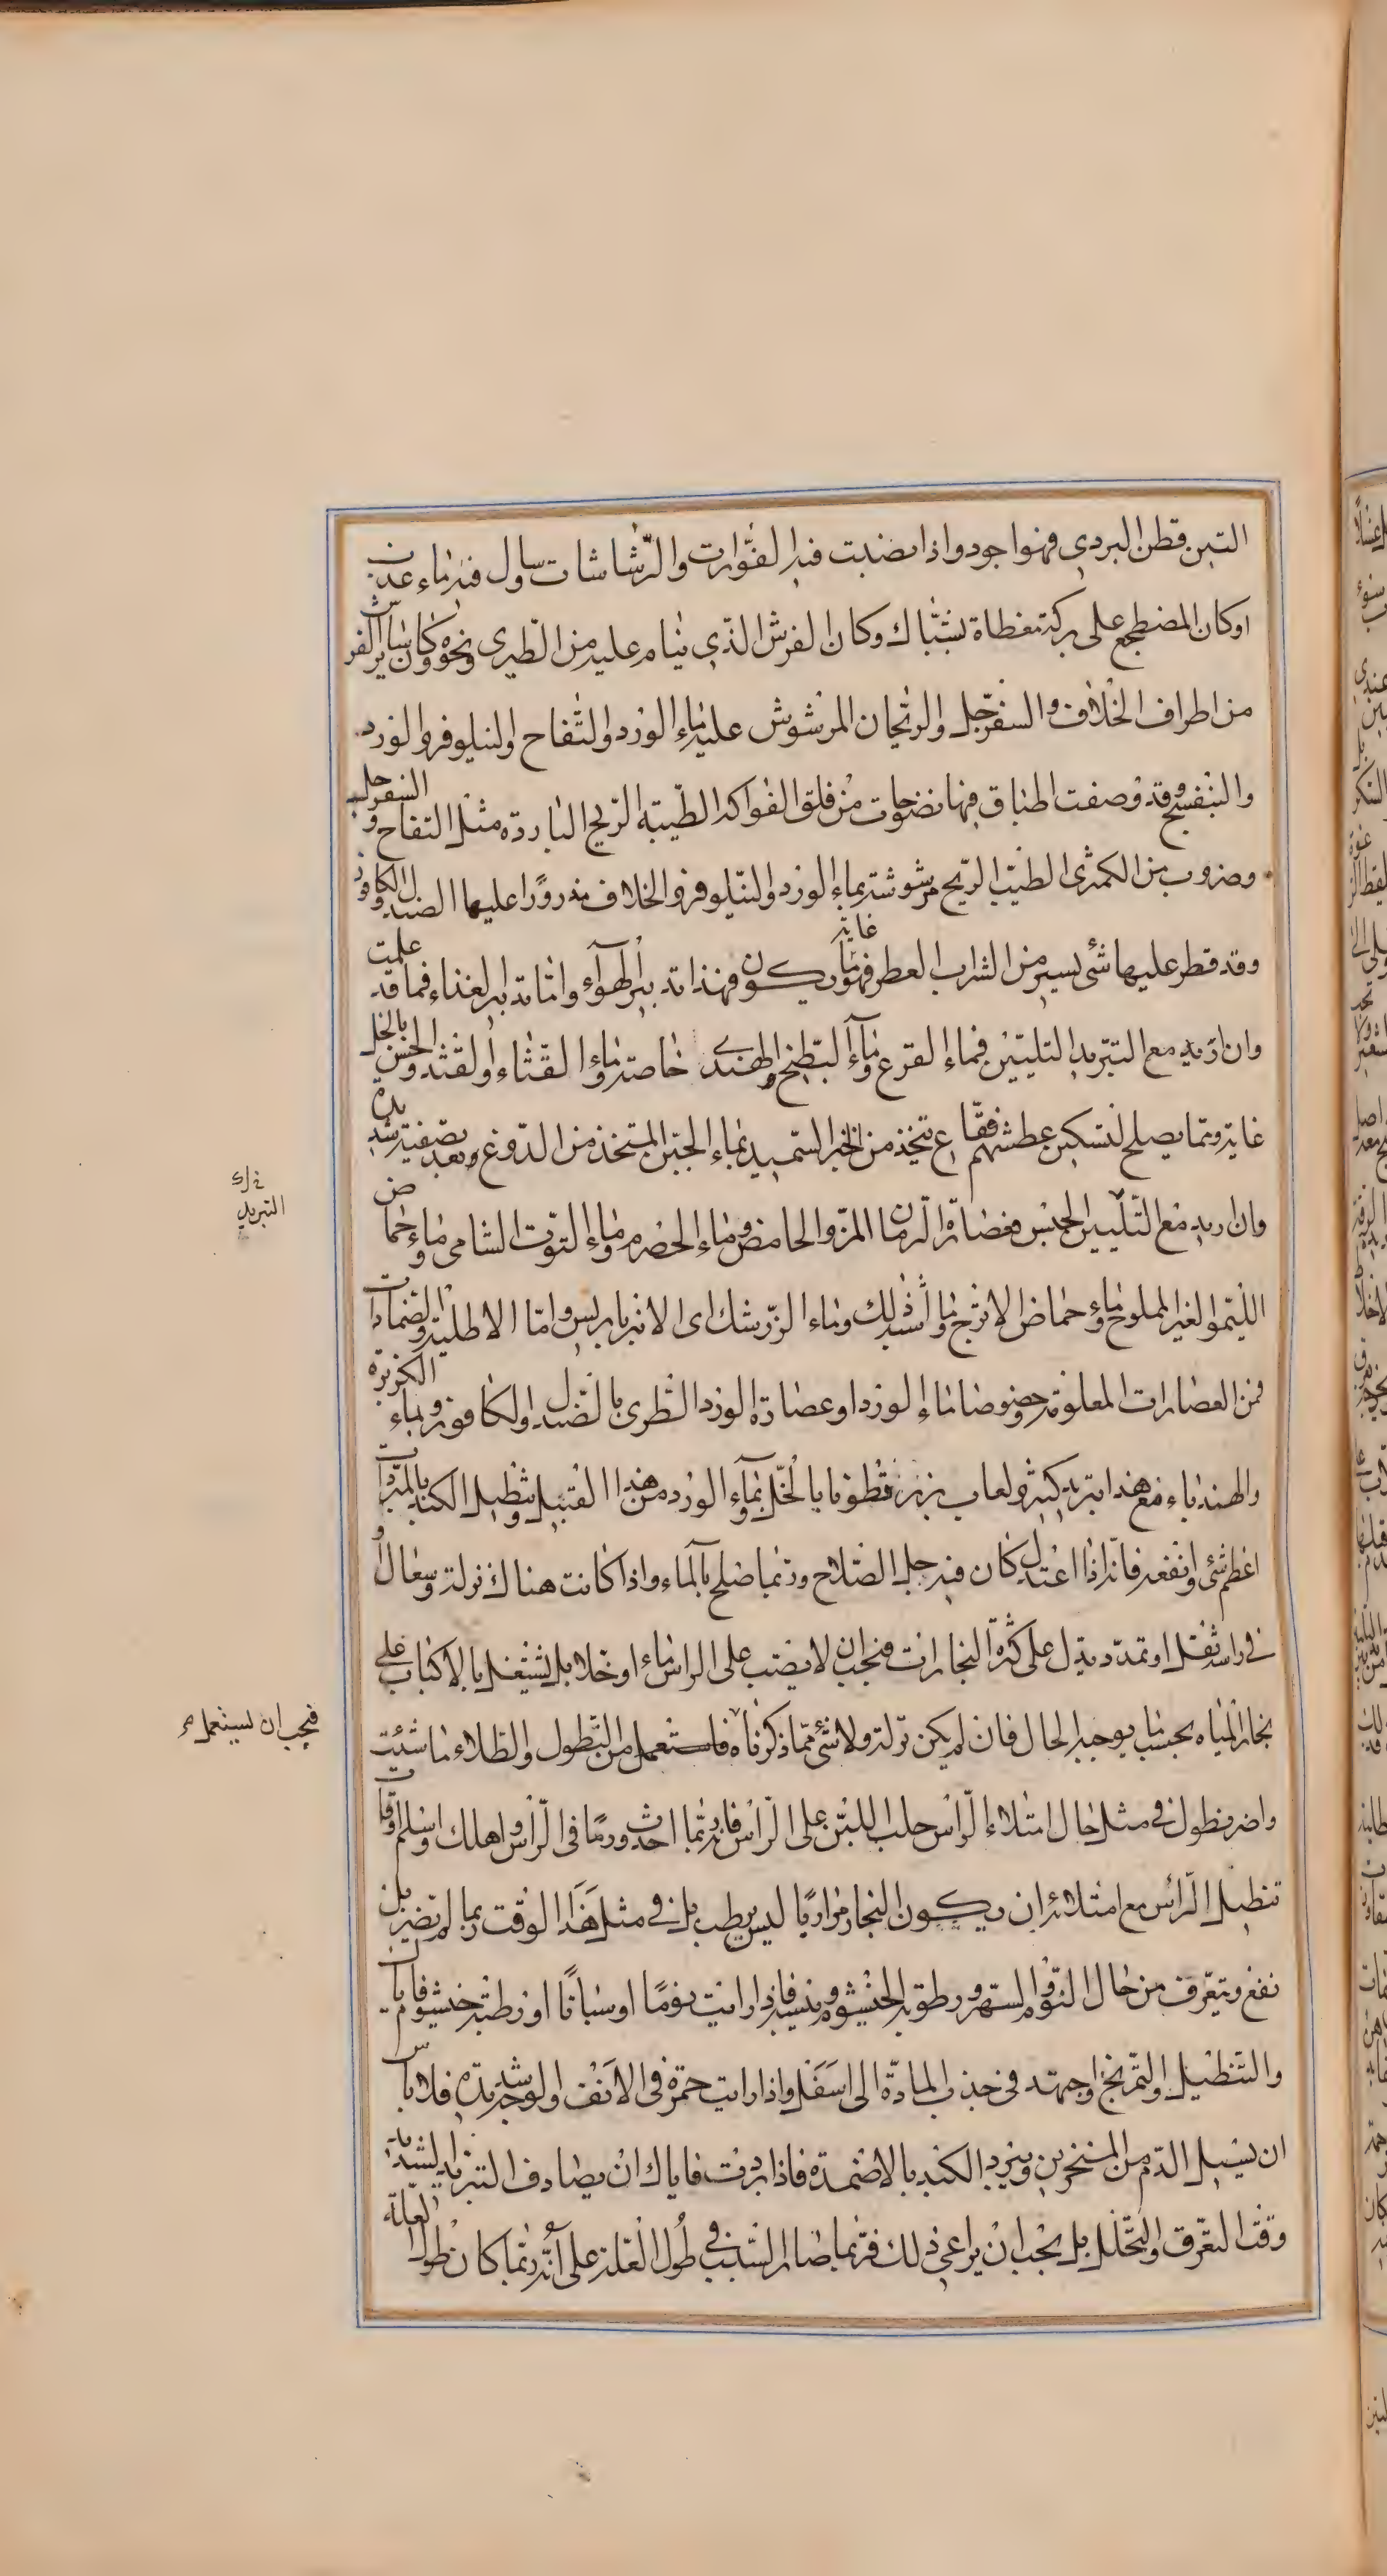 التبن قطن البردي فهوا جود واذا نصبت فيه الفوّارات والرّشاشات ساول فيه ماء عذب
اوكان المضطجع على بركة مغطاة بشبّاك وكان الفرش الذي ينام عليه من الطّبري ونحوه وكان ساير الفرش
من اطراف الخلاف والسفرجل والريحان المرشوش عليه ماء الورد والتّفاح والنيلوفر والورد
والبنفسج وقد وصفت اطباق فيها نضوحات من فلق الفواكه الطّيبة الرّيح الباردة مثل التفاح والسفرجل
وضروب من الكمثرى الطيّب الريح مرشوشة بماء الورد والنّيلوفر والخلاف مذرورًا عليها الصندل والكافور
وقد قطر عليها شئ يسير من الشراب العطر فهو غاية ما يكون فهذا تدبير الهوآء وامّا تدبير الغذاء فما قد علمت
وان اريد مع التبريد التليين فماء القرع وماء البطيخ الهندي خاصة وماء القثاء والقثد والخس بالخل
غاية ومما يصلح لتسكين عطشهم فقاع يتخذ من الخبز السميد بماء الجبن المتخذ من الدوغ وبعد تصفيته بشدة
وان اريد مع التليين الحبس فعصارة الرمان المز والحامض وماء الحصرم وماء التوت الشامي وماء حماض
الليمو الغير المملوح وماء حماض الاترج وما اشبه ذلك وماء الزرشك اى الانبرباريس واما الاطلية والضمادات
فمن العصارات المعلومة وخصوصا ماء الورد او عصارة الورد الطرى بالصندل والكافور وبماء الكزبرة
والهندباء مع هذا تبريد كثير ولعاب بزر قطونا بالخل وبماء الورد من هذا القبيل وتنطيل الكبد بالمبردات
اعظم شئ وانفعه فانه اذا اعتدل كان فيه جل الصلاح وربما صلح بالماء واذا كانت هناك نزلة وسعال او
في راسه ثقل او تمدد يدل على كثرة البخارات فيجب ان لا يصب على الراس ماء او خلا بل يشتغل بالاكباب على
بخار المياه بحسب ما يوجبه الحال فان لم يكن نزلة ولا شئ مما ذكرناه فاستعمل من النطول والطلاء ما شئت
واضر نطول في مثل حال امتلاء الراس حلب اللبن على الراس فانه ربما احدث ورمًا في الراس واهلك واسلم اوقات
تنطيل الراس مع امتلائه ان يكون البخار مراريًا ليس برطب بل في مثل هذا الوقت ربما لم يضر بل
نفع ويتعرف من حال النوم والسهر ورطوبة الخيشوم ويبسه فاذا رايت نومًا او سباتًا او رطبة خيشوم فاياك
والتنطيل والتمريخ واجهد في جذب المادة الى اسفل واذا رايت حمرة في الانف والوجه شديدة فلا باس
ان يسيل الدم من المنخرين ويبرد الكبد بالاضمدة فاذا بردت فاياك ان يصادف التبريد الشديد
وقت التعرق والتحلل بل يجب ان يراعي ذلك فربما صار السبب في طول العلة على انه ربما كان طول العلة
التبريد
فيجب ان يستعمل